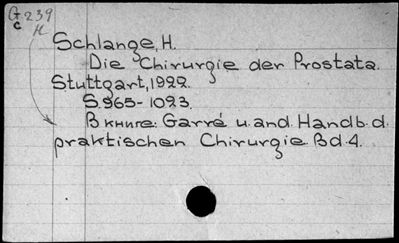 G 239
c H
Schlange, H.
Die Chirurgie der Prostata.
Stuttgart, 1922.
S. 965-1023.
В книге: Garré u. and. Handb. d.
praktischen Chirurgie Bd. 4.